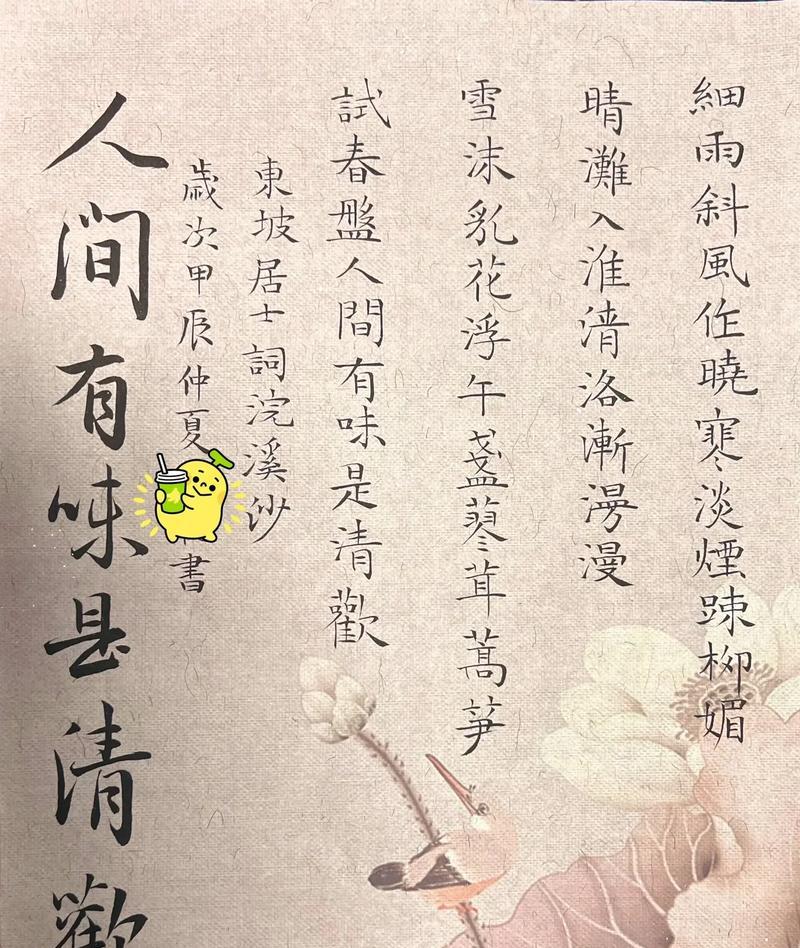 細雨斜風作曉寒淡煙踈柳媚
晴灘入淮清洛漸漫漫
雪沫乳花浮午盞蓼茸蒿笋
試春盤人間有味是清歡
東坡居士詞浣溪沙
歲次甲辰仲夏書
人間有味是清歡